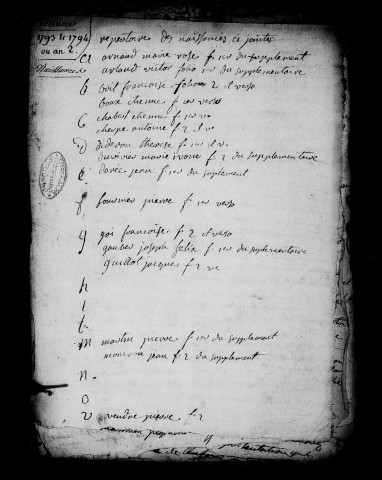 année
1793 & 1794
ou an 2.
Naissances
repertoire des naissances ci jointes
A arnaud marie rose f. 1er du suplement
arnaud victor folio 1er du suplementaire
B bvil françoise folio 2 et verso
boux etienne f. 1er verso
C chabert etienne f. 1er v.
cheype antoine f. 2 v.
D dideron therese f. 1er v.
duvivier marie ivone f. 2 du suplementaire
E davec jean f. 1er du suplement
f fournier pierre f. 1er verso
g goi francoise f. 2 et verso
gauber joseph felix f. 1er du suplementaire
guillot jacques f. 2 vo
h
i
l
M martin pierre f. 1er du supplement
moneron jean f. 2 du supplement
n
o
v vendre pierre f. 2